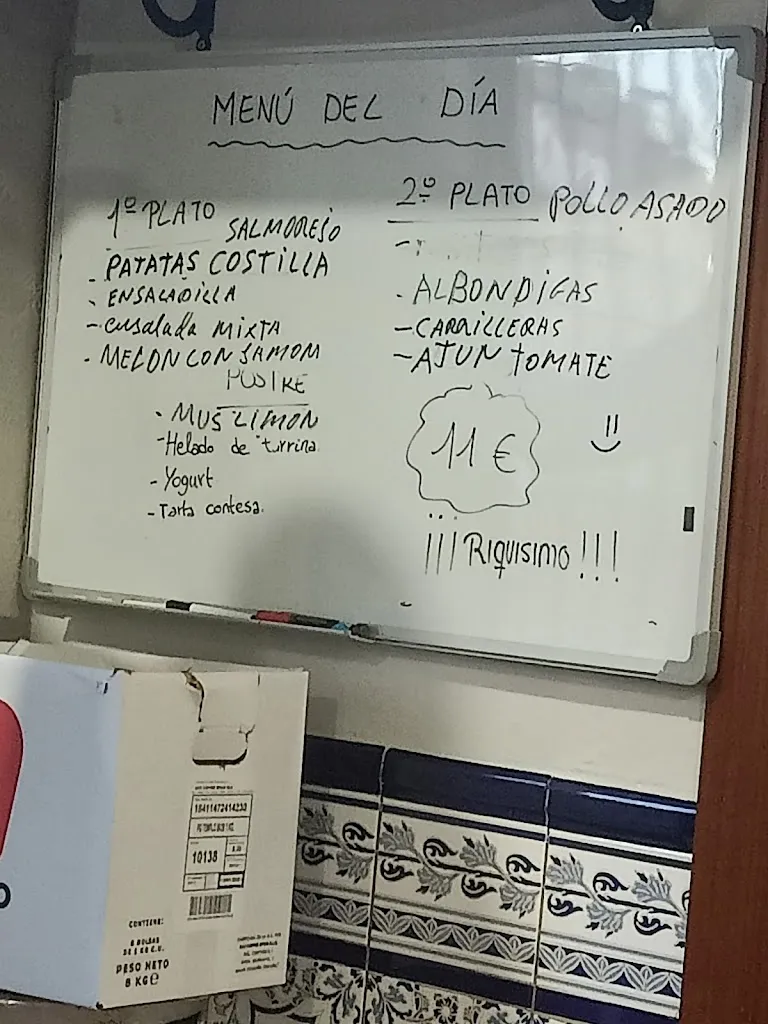 MENÚ DEL DÍA
1º PLATO SALMOREJO
- PATATAS COSTILLA
- ENSALADILLA
- ensalada mixta
- MELON CON JAMON
POSTRE
- MUS LIMON
- Helado de turrina
- Yogurt
- Tarta contesa.
2º PLATO POLLO ASADO
- ALBONDIGAS
- CARRILLERAS
- ATUN TOMATE
11 €
¡¡¡RIQUISIMO!!!
10138
CONTIENE:
6 BOLSAS
PESO NETO
8 KG e